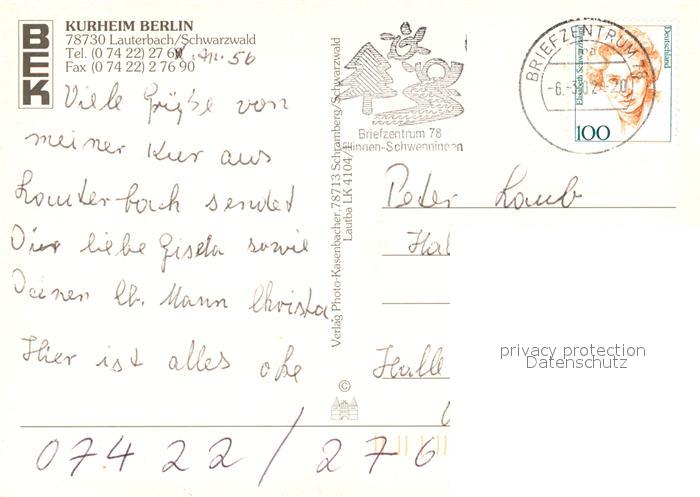 BEK
KURHEIM BERLIN
78730 Lauterbach/Schwarzwald
Tel. (0 74 22) 27 6
Fax (0 74 22) 2 76 90
Viele Grüße von
meiner Kur aus
Lauterbach sendet
Dir liebe Gisela sowie
Deinen lb. Mann Christa
Hier ist alles oke
07422/276
Verlag Photo-Kasenbacher, 78713 Schramberg/Schwarzwald
Lautba LK 4104/
©
Briefzentrum 78
llingen-Schwenningen
BRIEFZENTRUM 78
Elisabeth Schwarzhaupt
Deutschland
100
Peter Laub
Hal
Halle
privacy protection
Datenschutz